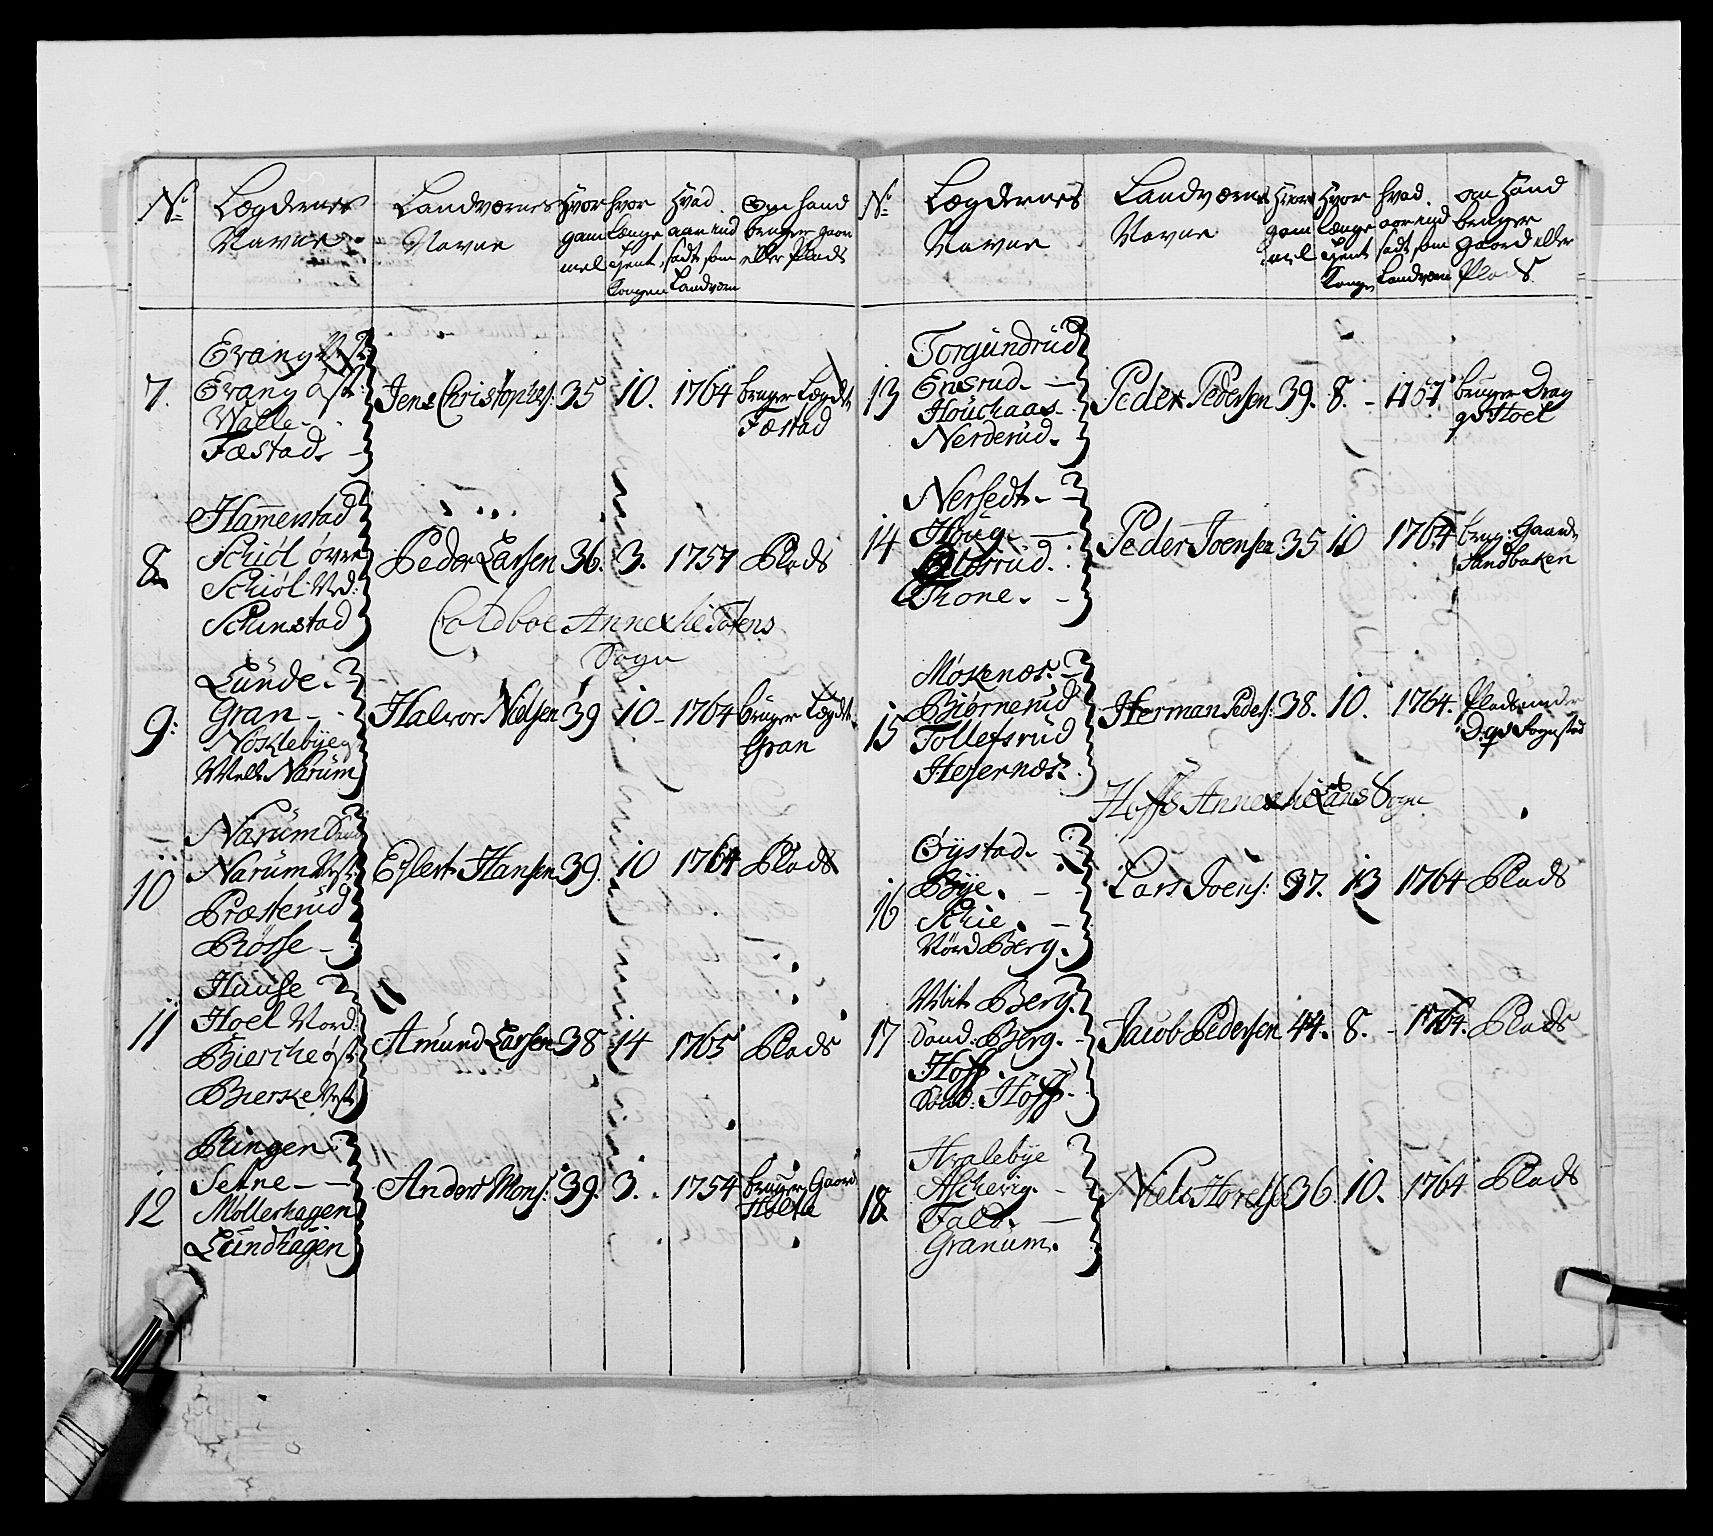 No
Lægdernes
Navne
Landværnes
Navne
Hvor
gam
mel
hvor
længe
tjent
Kongen
Hvad
aar ind
sadt som
Landværn
Om hand
bruger gaard
eller Plads
7.
Evang Vest:
Evang øst:
Walle.
Fæstad.
Jens Christophers: 35 10. 1764 bruger Lægdet
Fæstad
8
Hamerstad
Schiøl øvre
Schiøl Ned:
Schinstad
Peder Larsen 36. 3. 1757 Plads
Coldboe Annex til Totens
Sogn
9:
Lunde.
Gran
Nøcklebÿe
Mell: Narum
Halvor Nielsen 39 10 1764 bruger Lægdet
Gran
10
Narum
Narum Vest:
Præsterud
Bøsse
Eglert Hansen 39. 10 1764 Plads
11
Huuse
Hoel Nord:
Bierche øst:
Bierske Vest:
Amund Larsen 38 14 1765 Plads
12
Ringen
Setne
Møllerhagen
Lundhagen
Anders Mons: 39. 3. 1754 bruger Gaard
No
Lægdernes
Navne
Landværns
Navne
Hvor
gam
mel
Hvor
længe
tjent
Konge
hvad
aar ind
sadt som
Landværn
om Hand
bruger
gaard eller
Plads
13
Torgundrud
Ensrud.
Houchaas.
Nerderud.
Peder Pedersen 39. 8. 1757 bruger
Hoel
14
Nersedt.
Houg.
Thone.
Peder Joensen 35 10 1764 brug: Gaard
Sandbaken
15
Møkenæs.
Biørnerud
Tollefsrud
Hesernæs.
Herman Peders: 38. 10. 1764. Plads under
Sognstad
Hoffs Annex til Lans Sogn
16
Øystad.
Bÿe.
Schie.
Nørd Berg.
Lars Joens: 37. 13 1764 Plads
17
Mit Berg.
Sønd: Berg.
Hoff.
Sønd: Hoff.
Jacob Pedersen 44. 8. 1764. Plads
18.
Hvalebÿe
Alchevig.
Fald.
Granum.
Niels 36 10. 1764 Plads